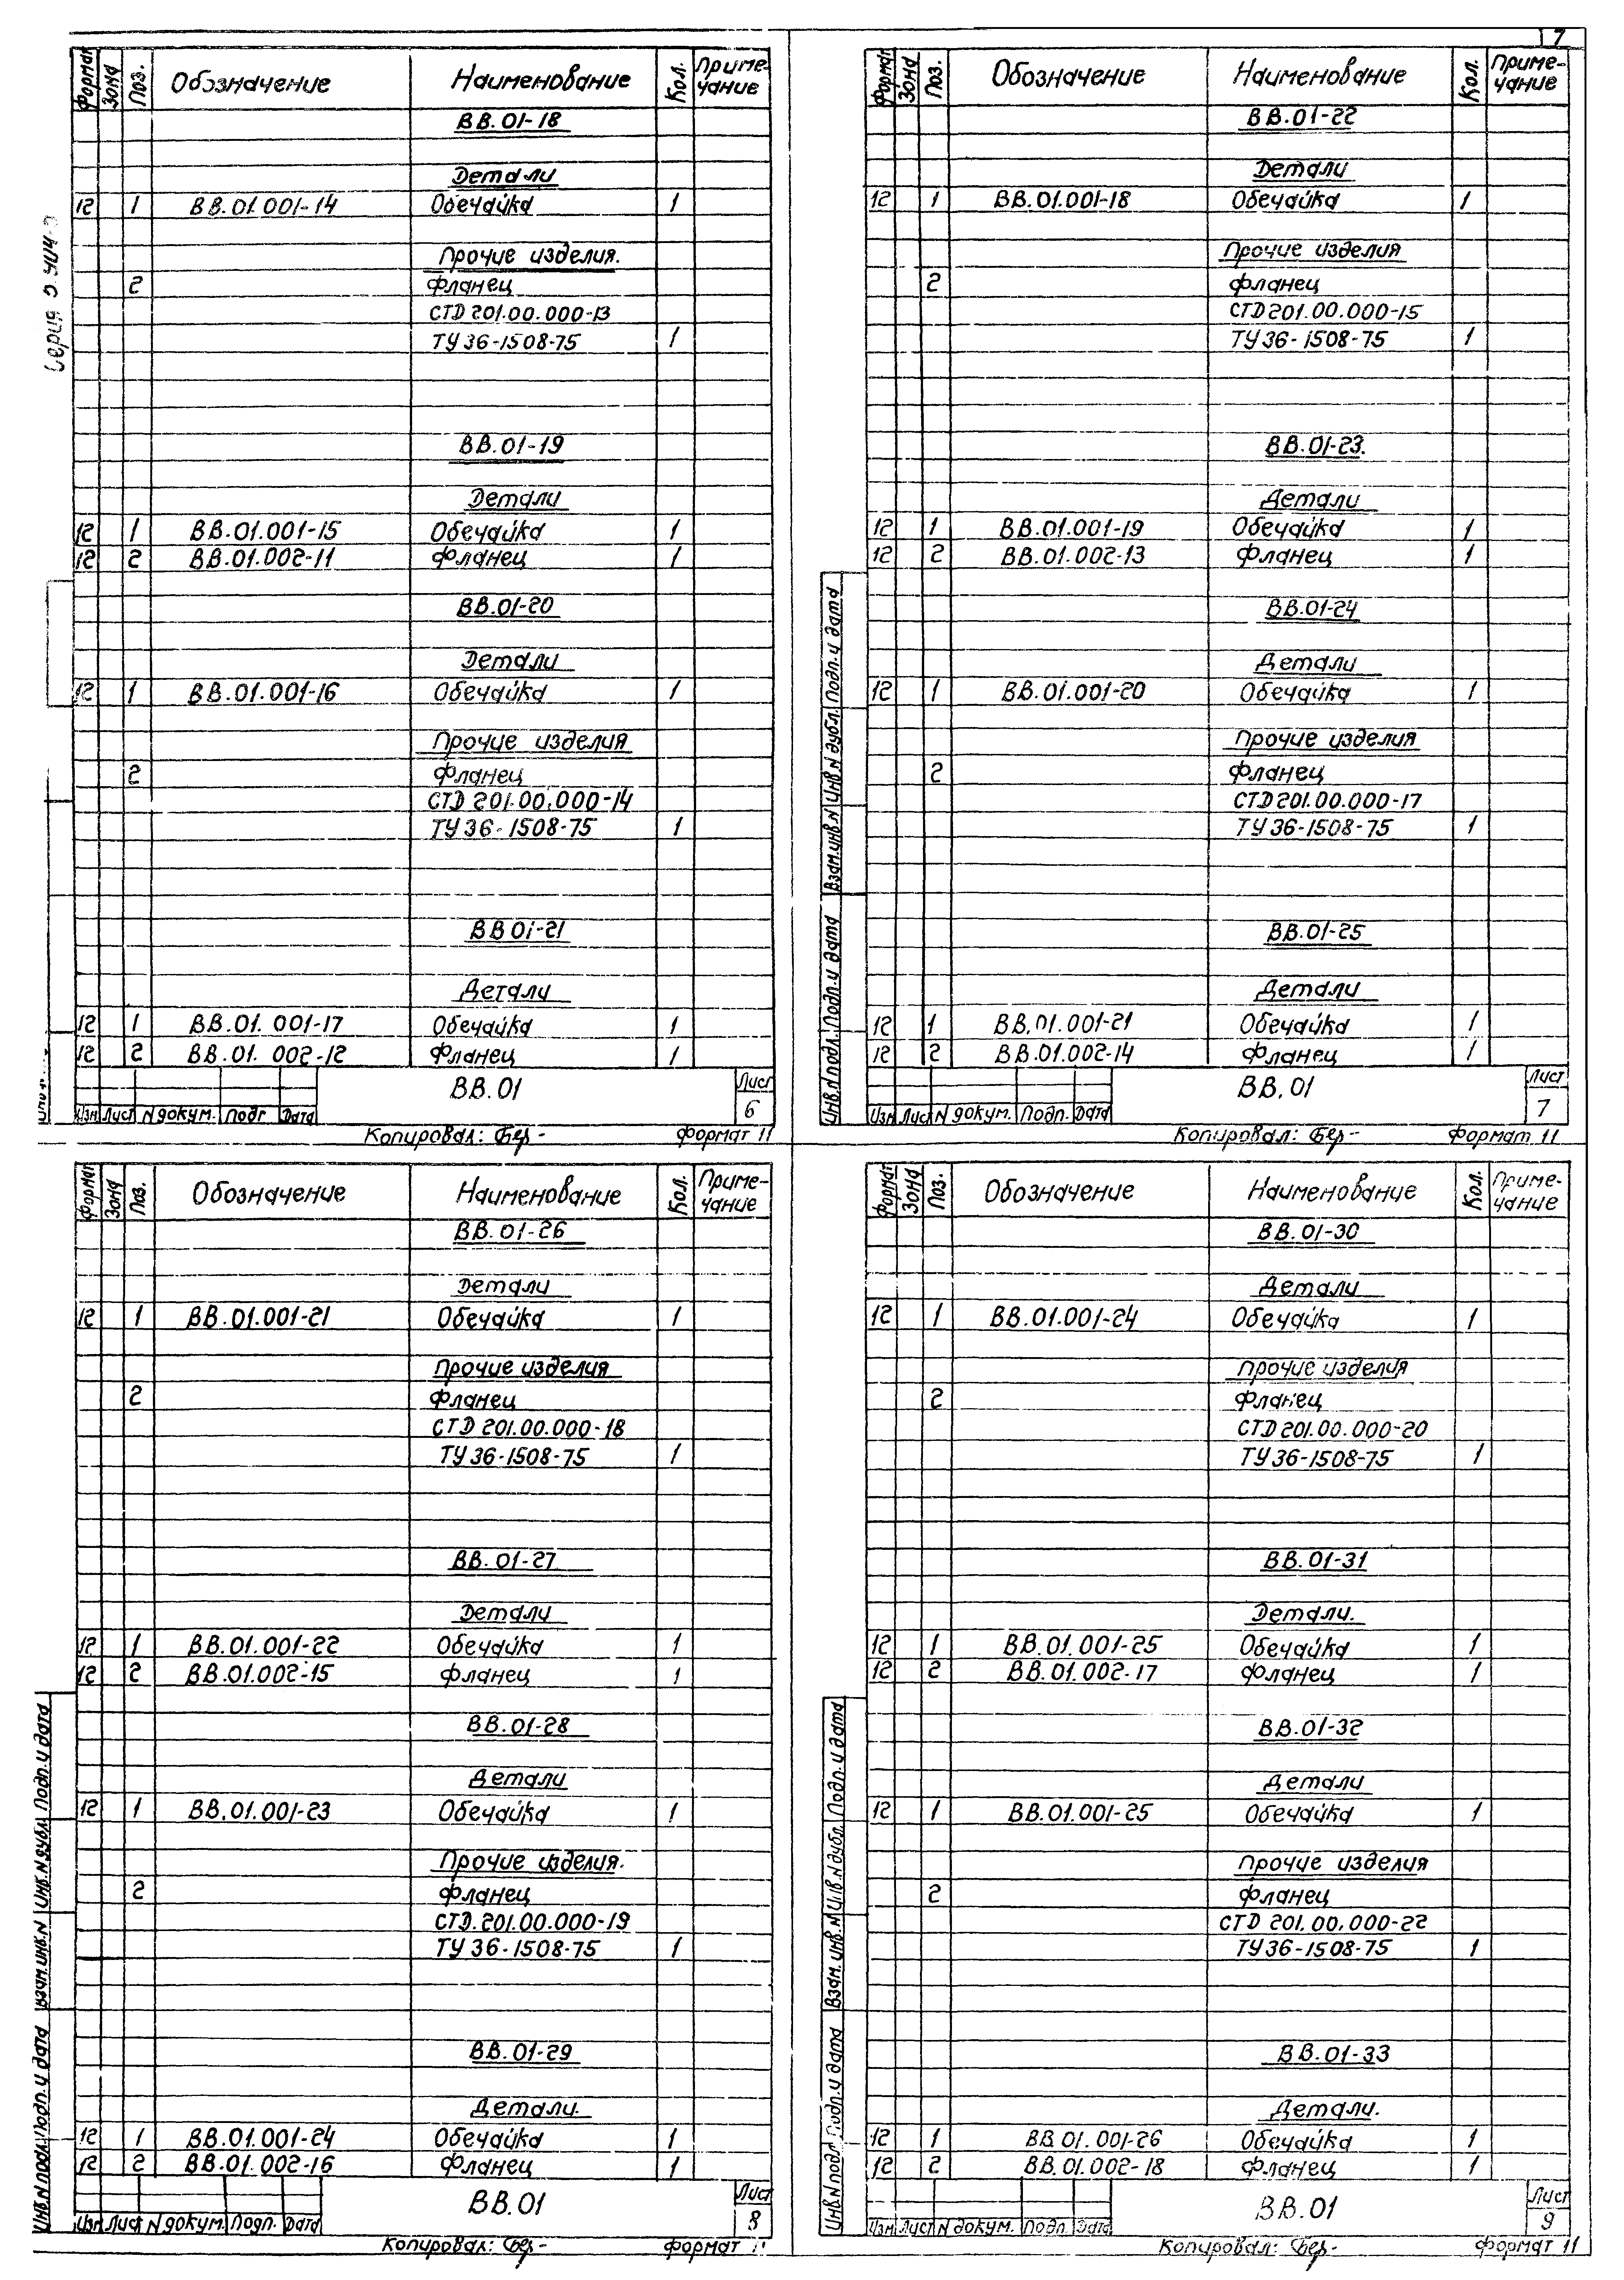 7
Серия
Формат Зона Поз. Обозначение Наименование Кол. Приме-
чание
ВВ.01-18
Детали
12 1 ВВ.01.001-14 Обечайка 1
Прочие изделия.
2 Фланец
СТД 201.00.000-13
ТУ 36-1508-75 1
ВВ.01-19
Детали
12 1 ВВ.01.001-15 Обечайка 1
12 2 ВВ.01.002-11 Фланец 1
ВВ.01-20
Детали
12 1 ВВ.01.001-16 Обечайка 1
Прочие изделия
2 Фланец
СТД 201.00.000-14
ТУ 36-1508-75 1
ВВ 01-21
Детали
12 1 ВВ.01. 001-17 Обечайка 1
12 2 ВВ.01. 002-12 Фланец 1
ВВ.01
Лист
6
Изм Лист N докум. Подп Дата
Копировал: Бер- Формат 11
Формат Зона Поз. Обозначение Наименование Кол. Приме-
чание
ВВ.01-22
Детали
12 1 ВВ.01.001-18 Обечайка 1
Прочие изделия
2 Фланец
СТД 201.00.000-15
ТУ 36-1508-75 1
ВВ.01-23.
Детали
12 1 ВВ.01.001-19 Обечайка 1
12 2 ВВ.01.002-13 Фланец 1
ВВ.01-24
Детали
12 1 ВВ.01.001-20 Обечайка 1
Прочие изделия
2 Фланец
СТД 201.00.000-17
ТУ 36-1508-75 1
ВВ.01-25
Детали
12 1 ВВ.01.001-21 Обечайка 1
12 2 ВВ.01.002-14 Фланец 1
ВВ.01
Лист
7
Изм Лист N докум. Подп. Дата
Инв.N подл. Подп. и дата Взам.инв.N Инв.N дубл. Подп. и дата
Копировал: Бер- Формат 11
Формат Зона Поз. Обозначение Наименование Кол. Приме-
чание
ВВ.01-26
Детали
12 1 ВВ.01.001-21 Обечайка 1
Прочие изделия
2 Фланец
СТД 201.00.000-18
ТУ 36-1508-75 1
ВВ.01-27
Детали
12 1 ВВ.01.001-22 Обечайка 1
12 2 ВВ.01.002-15 Фланец 1
ВВ.01-28
Детали
12 1 ВВ.01.001-23 Обечайка 1
Прочие изделия.
2 Фланец
СТД.201.00.000-19
ТУ 36-1508-75 1
ВВ.01-29
Детали.
12 1 ВВ.01.001-24 Обечайка 1
12 2 ВВ.01.002-16 Фланец 1
ВВ.01
Лист
8
Изм Лист N докум. Подп. Дата
Инв.N подл. Подп. и дата Взам.инв.N Инв.N дубл. Подп. и дата
Копировал: Бер- Формат
Формат Зона Поз. Обозначение Наименование Кол. Приме-
чание
ВВ.01-30
Детали
12 1 ВВ.01.001-24 Обечайка 1
Прочие изделия
2 Фланец
СТД 201.00.000-20
ТУ 36-1508-75 1
ВВ.01-31
Детали.
12 1 ВВ.01.001-25 Обечайка 1
12 2 ВВ.01.002-17 Фланец 1
ВВ.01-32
Детали
12 1 ВВ.01.001-25 Обечайка 1
Прочие изделия
2 Фланец
СТД 201.00.000-22
ТУ 36-1508-75 1
ВВ.01-33
Детали.
12 1 ВВ 01.001-26 Обечайка 1
12 2 ВВ.01.002-18 Фланец 1
ВВ.01
Лист
9
Изм Лист N докум. Подп. Дата
Инв.N подл Подп. и дата Взам.инв.N Инв.N дубл. Подп. и дата
Копировал: Бер- Формат 11